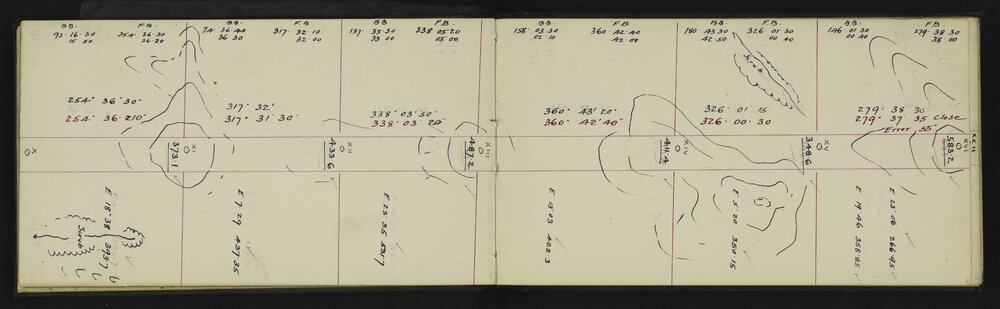 B.B. F.B.
93· 16· 30 254· 36·30
15 50 36·20
254° 36' 30"
254° 36' 210"
X
B.B. F.B.
74· 36·40 317· 32·10
36 30 32·00
317° 32'
317° 31' 30"
XI
373·1
B.B. F.B.
137· 33·30 338 05·20
33 00 05·00
338° 03' 50"
338° 03' 20"
XII
433·6
XIII
487·2
B.B. F.B.
158· 03 30 360· 42·40
02 10 42·00
360° 43' 20"
360° 42' 40"
B.B. F.B.
180 43 30 326· 01 30
42·50 00 40
Scrub
326· 01 15
326· 00 30
XIV
411·4
B.B. F.B.
146 01 30 279· 38 30
00 40 38 00
279· 38 30
279· 37 35 Close
Error 55"
XV
348·6
XVI
XXIII
583·2
E 18·38 393·7
Scrub
E 7·29 437·35
E 23·35 531·7
E 13·03 422·3
E 5·20 350·15
E 19·46 358·85
E 23·06 266·95